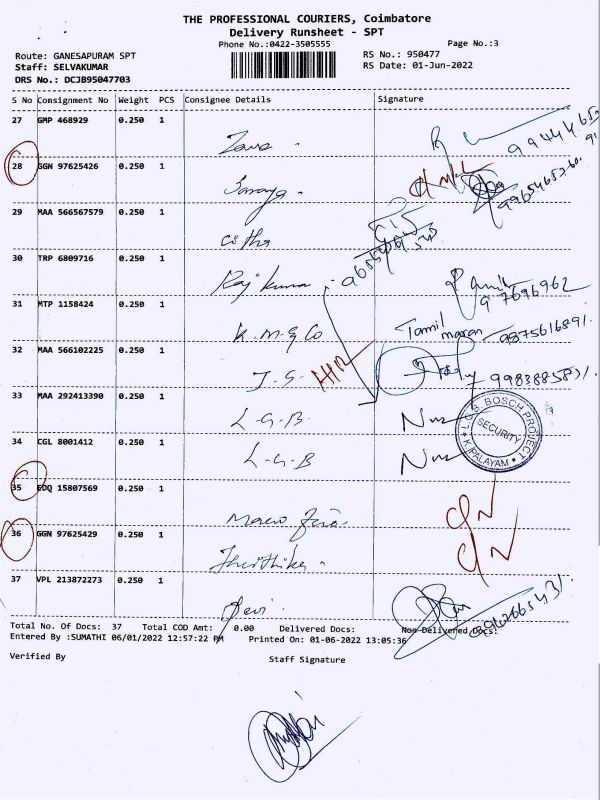 THE PROFESSIONAL COURIERS, Coimbatore
Delivery Runsheet - SPT
Phone No.:0422-3505555
Page No.:3
Route: GANESAPURAM SPT
RS No.: 950477
Staff: SELVAKUMAR
RS Date: 01-Jun-2022
DRS No.: DCJB95047703
S No Consignment No Weight PCS Consignee Details Signature
27 GMP 468929 0.250 1
28 GGN 97625426 0.250 1
Saranya
29 MAA 566567579 0.250 1
30 TRP 6809716 0.250 1
Rajkumar
31 MTP 1158424 0.250 1
K.M.G Co Tamil maran 9875616891
32 MAA 566102225 0.250 1
J.S.
33 MAA 292413390 0.250 1
L.G.B
L.G.B. BOSCH PROJECT
SECURITY
K.PALAYAM
34 CGL 8001412 0.250 1
L.G.B
35 EDQ 15807569 0.250 1
36 GGN 97625429 0.250 1
37 VPL 213872273 0.250 1
Devi
Total No. Of Docs: 37 Total COD Amt: 0.00 Delivered Docs: Non Delivered Docs:
Entered By :SUMATHI 06/01/2022 12:57:22 PM Printed On: 01-06-2022 13:05:36
Verified By Staff Signature